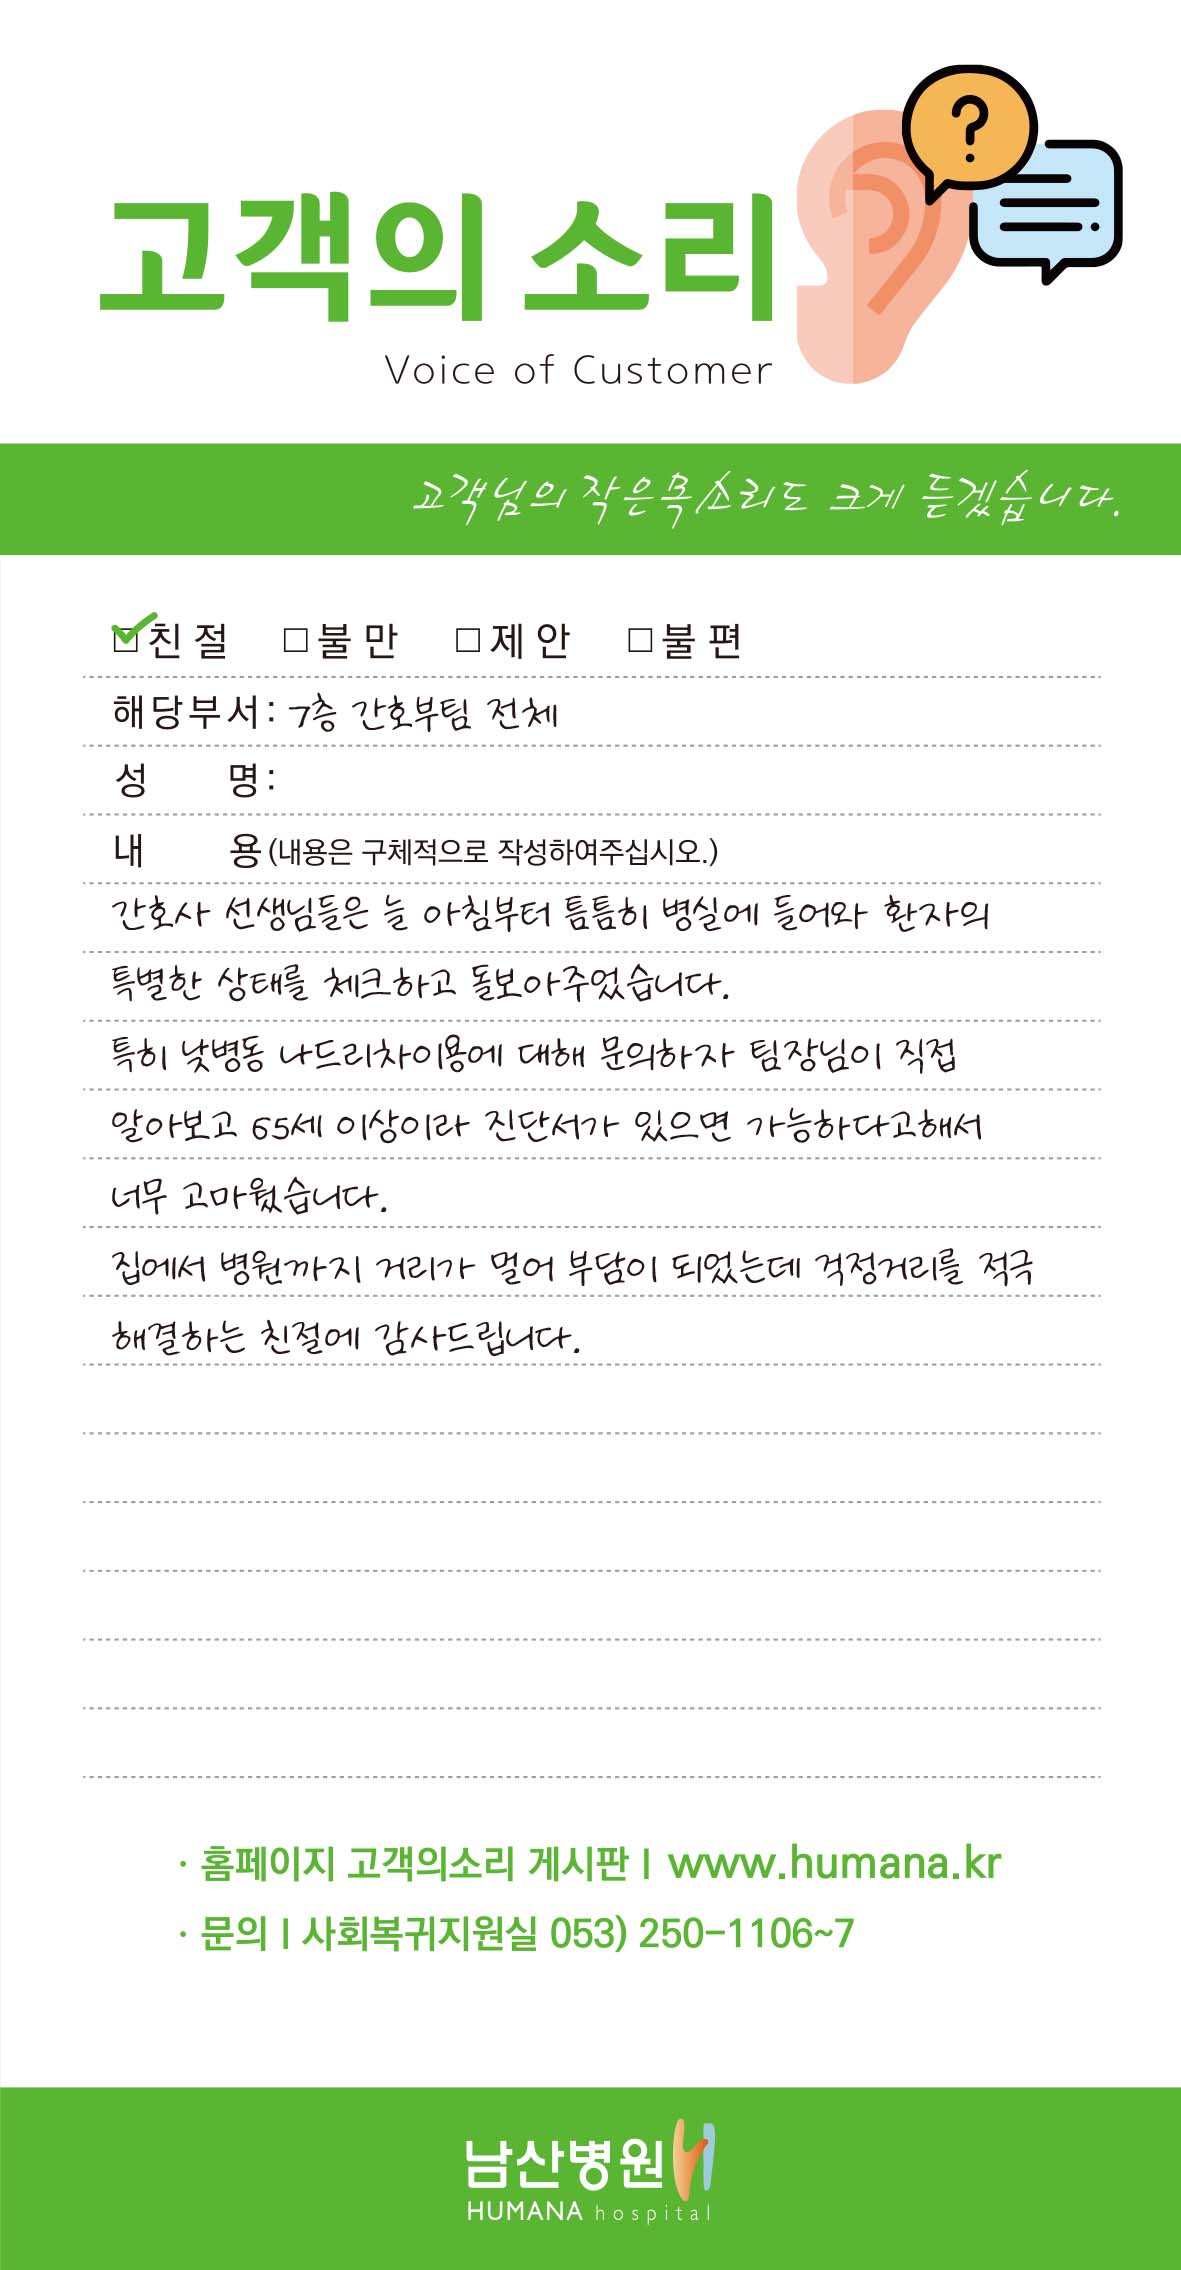 고객의 소리
Voice of Customer
고객님의 작은목소리도 크게 듣겠습니다.
친절 불만 제안 불편
해당부서: 7층 간호부팀 전체
성 명:
내 용(내용은 구체적으로 작성하여주십시오.)
간호사 선생님들은 늘 아침부터 틈틈히 병실에 들어와 환자의
특별한 상태를 체크하고 돌보아주었습니다.
특히 낮병동 나드리차이용에 대해 문의하자 팀장님이 직접
알아보고 65세 이상이라 진단서가 있으면 가능하다고해서
너무 고마웠습니다.
집에서 병원까지 거리가 멀어 부담이 되었는데 걱정거리를 적극
해결하는 친절에 감사드립니다.
· 홈페이지 고객의소리 게시판 | www.humana.kr
· 문의 | 사회복귀지원실 053) 250-1106~7
남산병원
HUMANA hospital